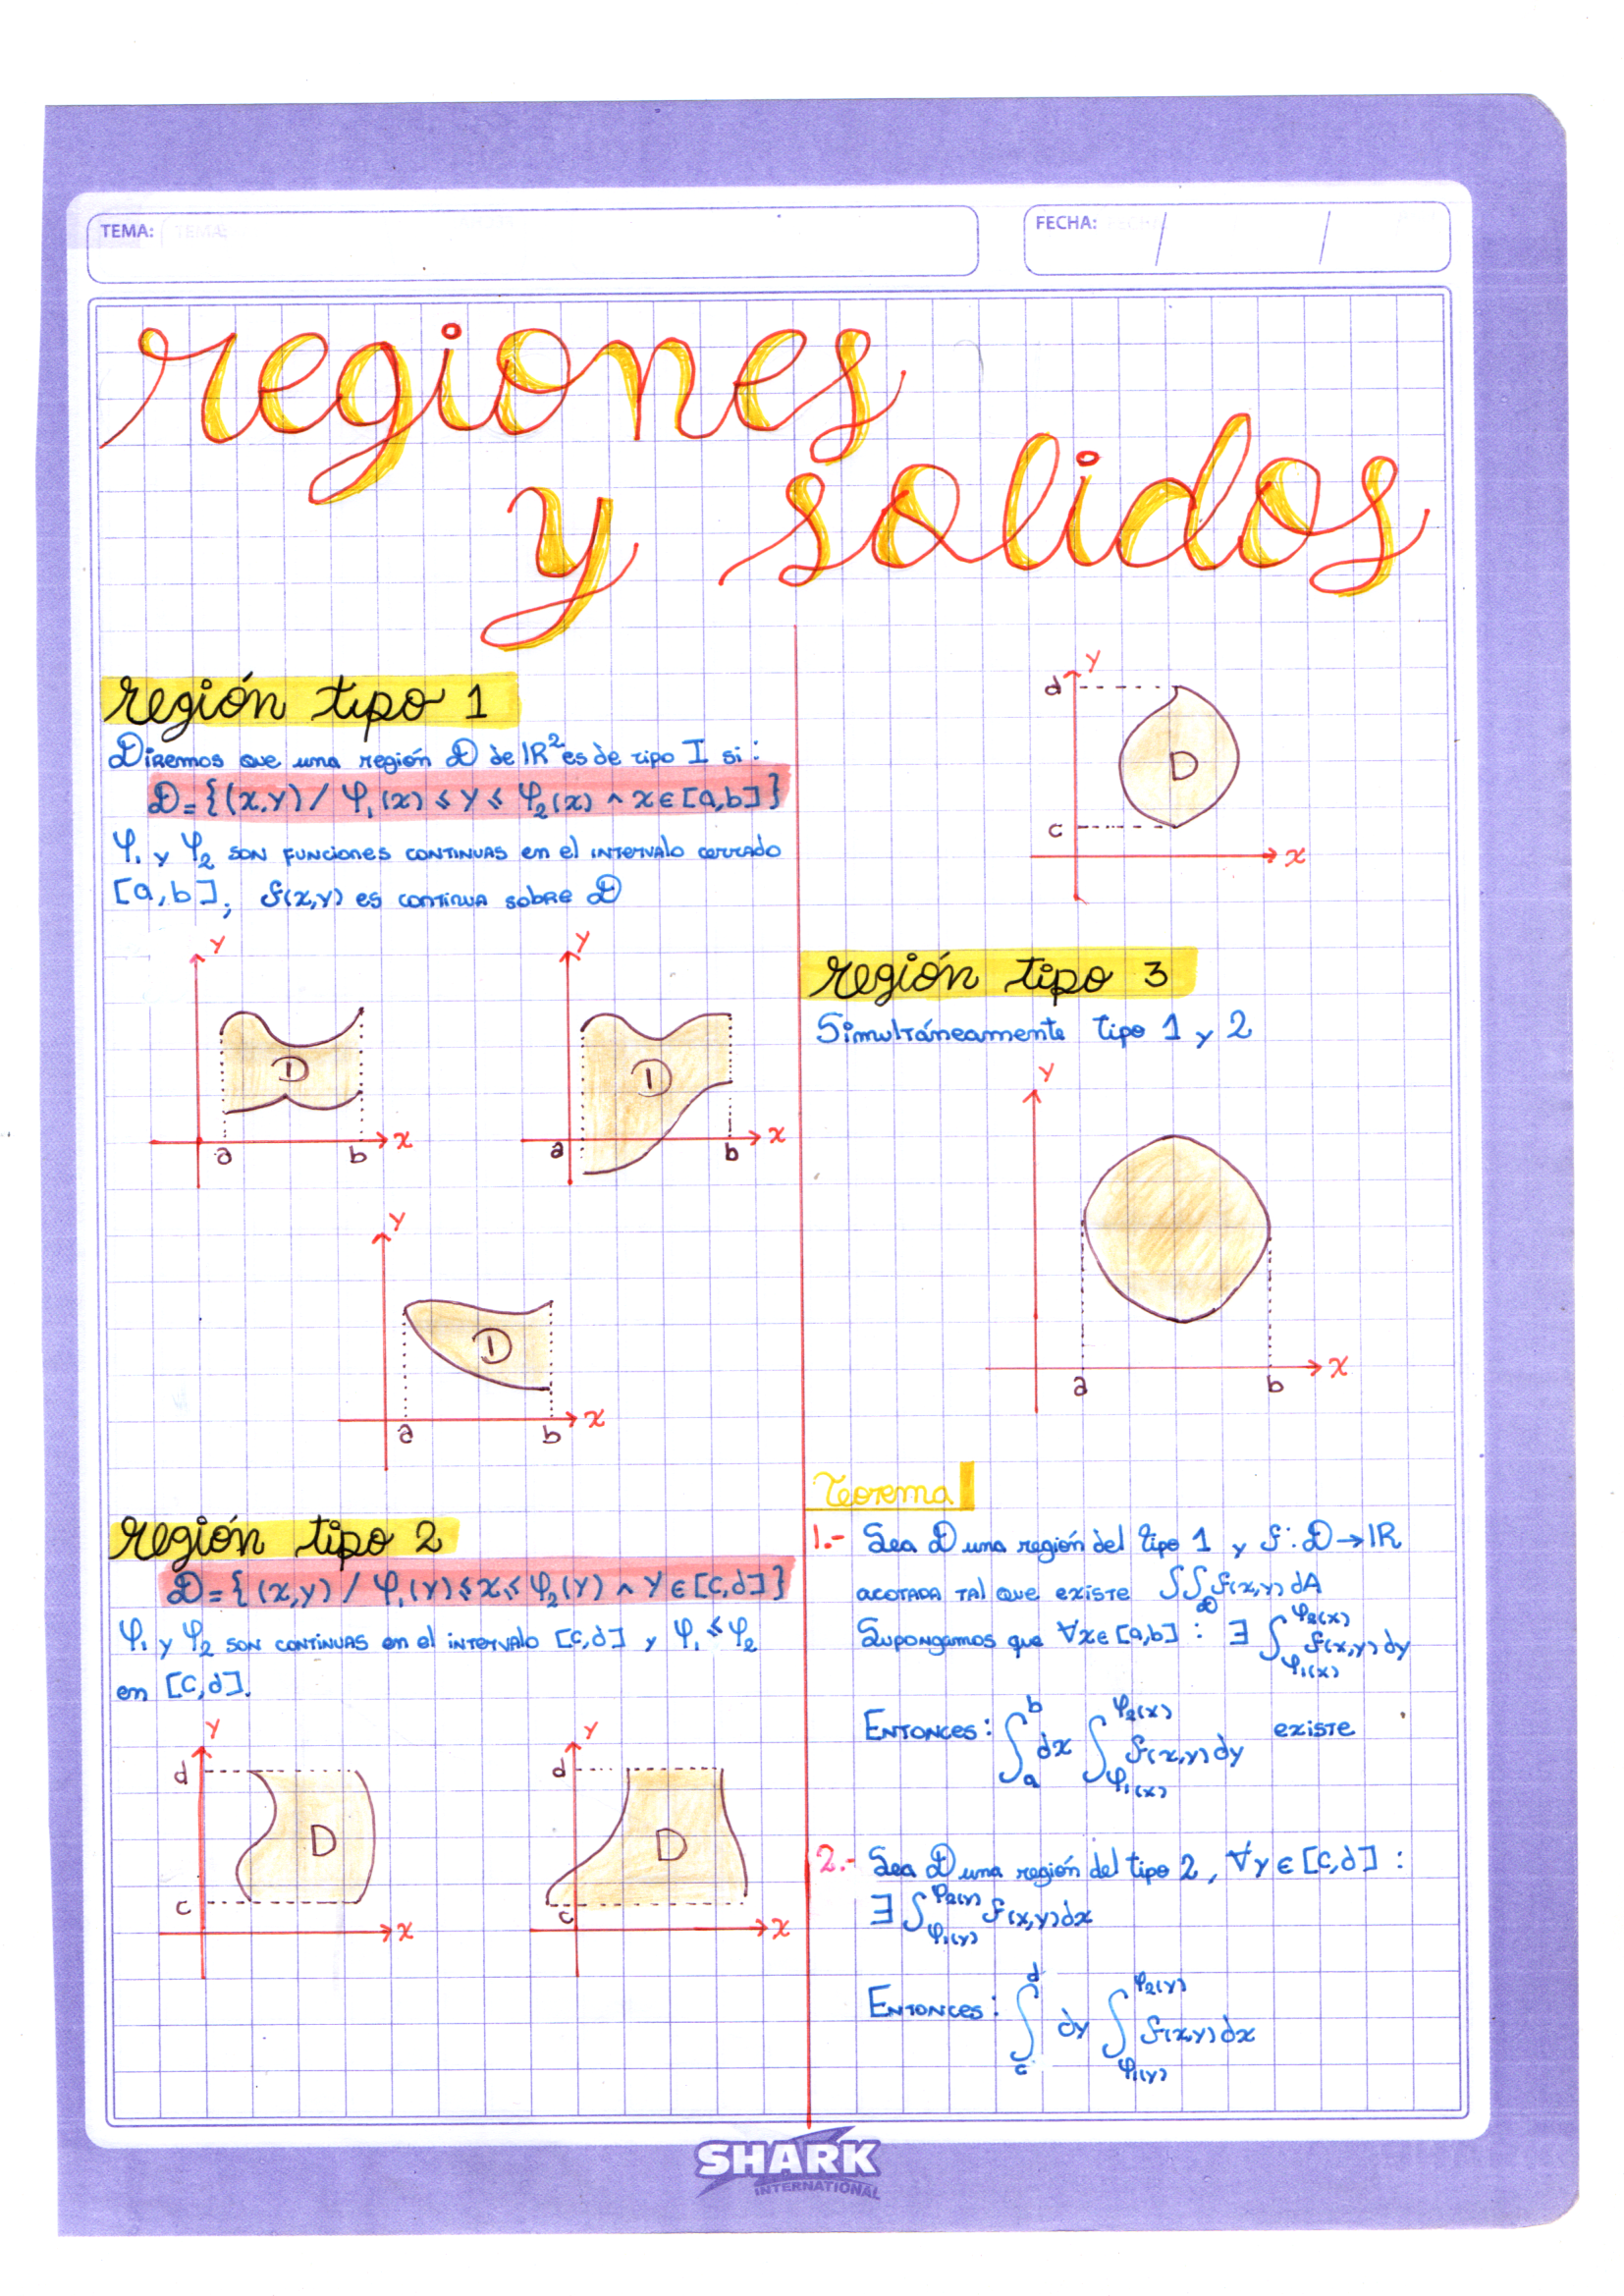 TEMA:
FECHA: / /
regiones
y solidos
región tipo 1
Diremos que una región D de IR² es de tipo I si:
D = {(x,y) / φ₁(x) ≤ y ≤ φ₂(x) ∧ x ∈ [a,b]}
φ₁ y φ₂ son funciones continuas en el intervalo cerrado
[a,b], f(x,y) es continua sobre D
y
D
a b x
y
D
a b x
y
D
a b x
región tipo 2
D = {(x,y) / φ₁(y) ≤ x ≤ φ₂(y) ∧ y ∈ [c,d]}
φ₁ y φ₂ son continuas en el intervalo [c,d] y φ₁ ≤ φ₂
en [c,d].
y
d
D
c
x
y
d
D
c
x
y
d
D
c
x
región tipo 3
Simultáneamente tipo 1 y 2
y
a b x
Teorema
1.- Sea D una región del tipo 1 y f: D → IR
acotada tal que existe ∫∫_D f(x,y) dA
Supongamos que ∀x ∈ [a,b] : ∃ ∫_{φ₁(x)}^{φ₂(x)} f(x,y) dy
Entonces: ∫_a^b dx ∫_{φ₁(x)}^{φ₂(x)} f(x,y) dy existe
2.- Sea D una región del tipo 2, ∀y ∈ [c,d] :
∃ ∫_{φ₁(y)}^{φ₂(y)} f(x,y) dx
Entonces: ∫_c^d dy ∫_{φ₁(y)}^{φ₂(y)} f(x,y) dx
SHARK
INTERNATIONAL